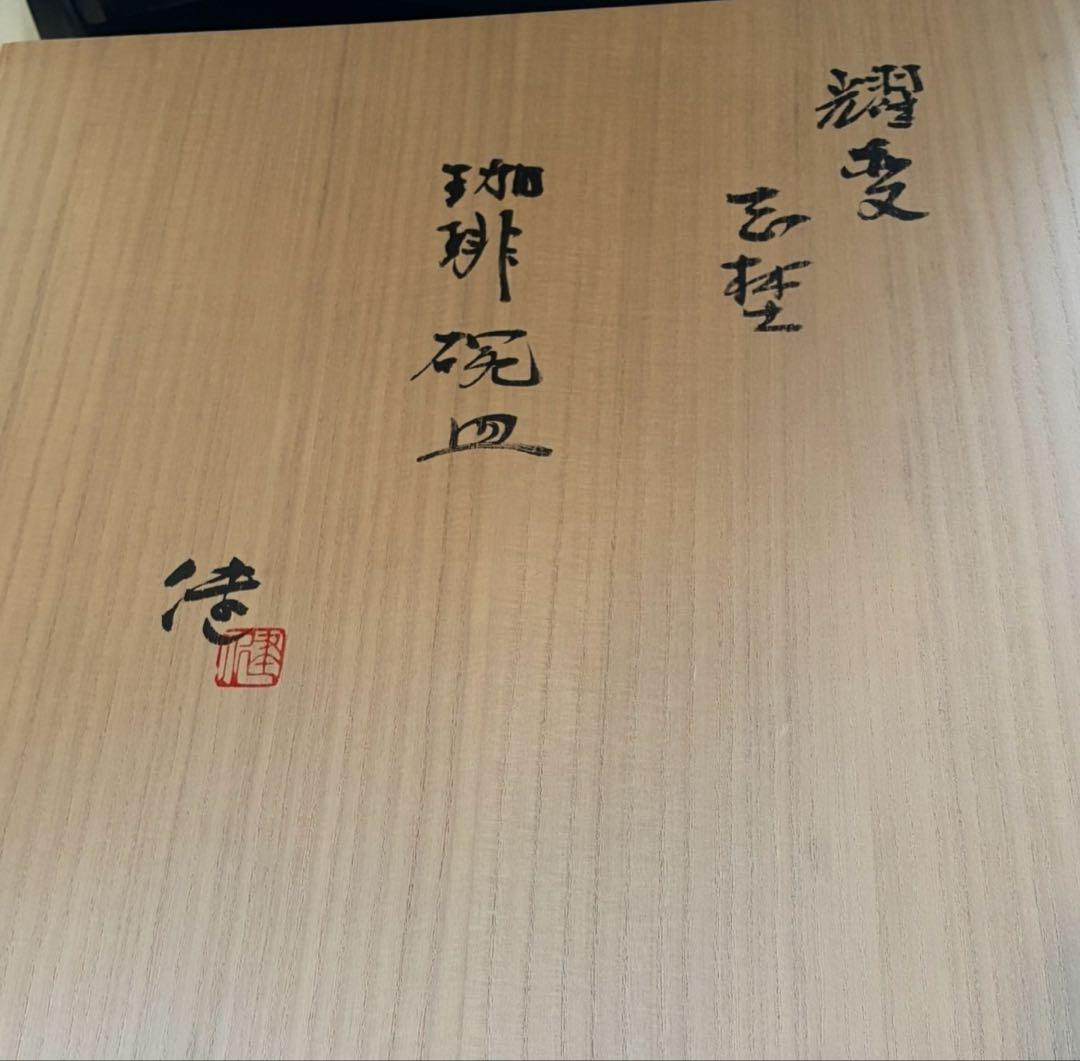 耀変
志埜
珈琲碗皿
健
健